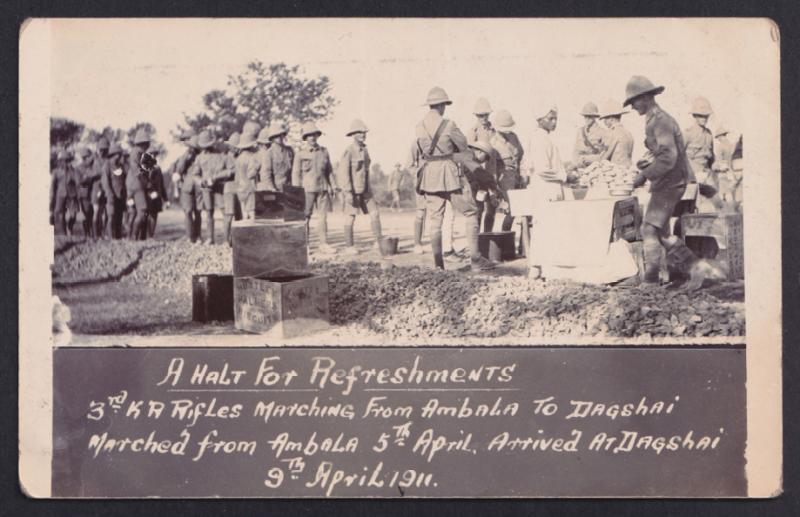 A HALT For Refreshments
3rd K R Rifles Marching From Ambala To Dagshai
Marche'd from Ambala 5TH April. Arrive'd At Dagshai
9TH April 1911.